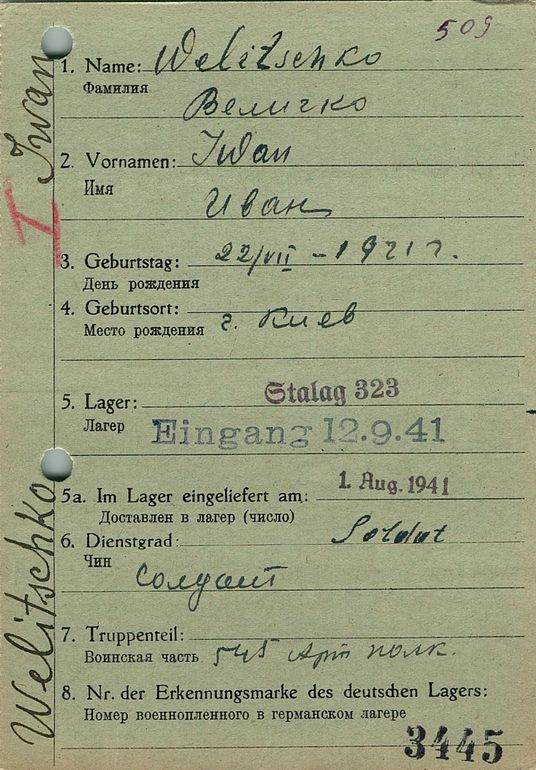 509
1. Name: Welitschko
Фамилия
Величко
2. Vornamen: Iwan
Имя
Иван
3. Geburtstag: 22/VII – 1921 г.
День рождения
4. Geburtsort:
Место рождения г. Киев
5. Lager: Stalag 323
Лагер Eingang 12.9.41
5a. Im Lager eingeliefert am: 1. Aug. 1941
Доставлен в лагер (число)
6. Dienstgrad: Soldat
Чин солдат
7. Truppenteil:
Воинская часть 545 Арт полк.
8. Nr. der Erkennungsmarke des deutschen Lagers:
Номер военнопленного в германском лагере
3445
Welitschko Iwan
I